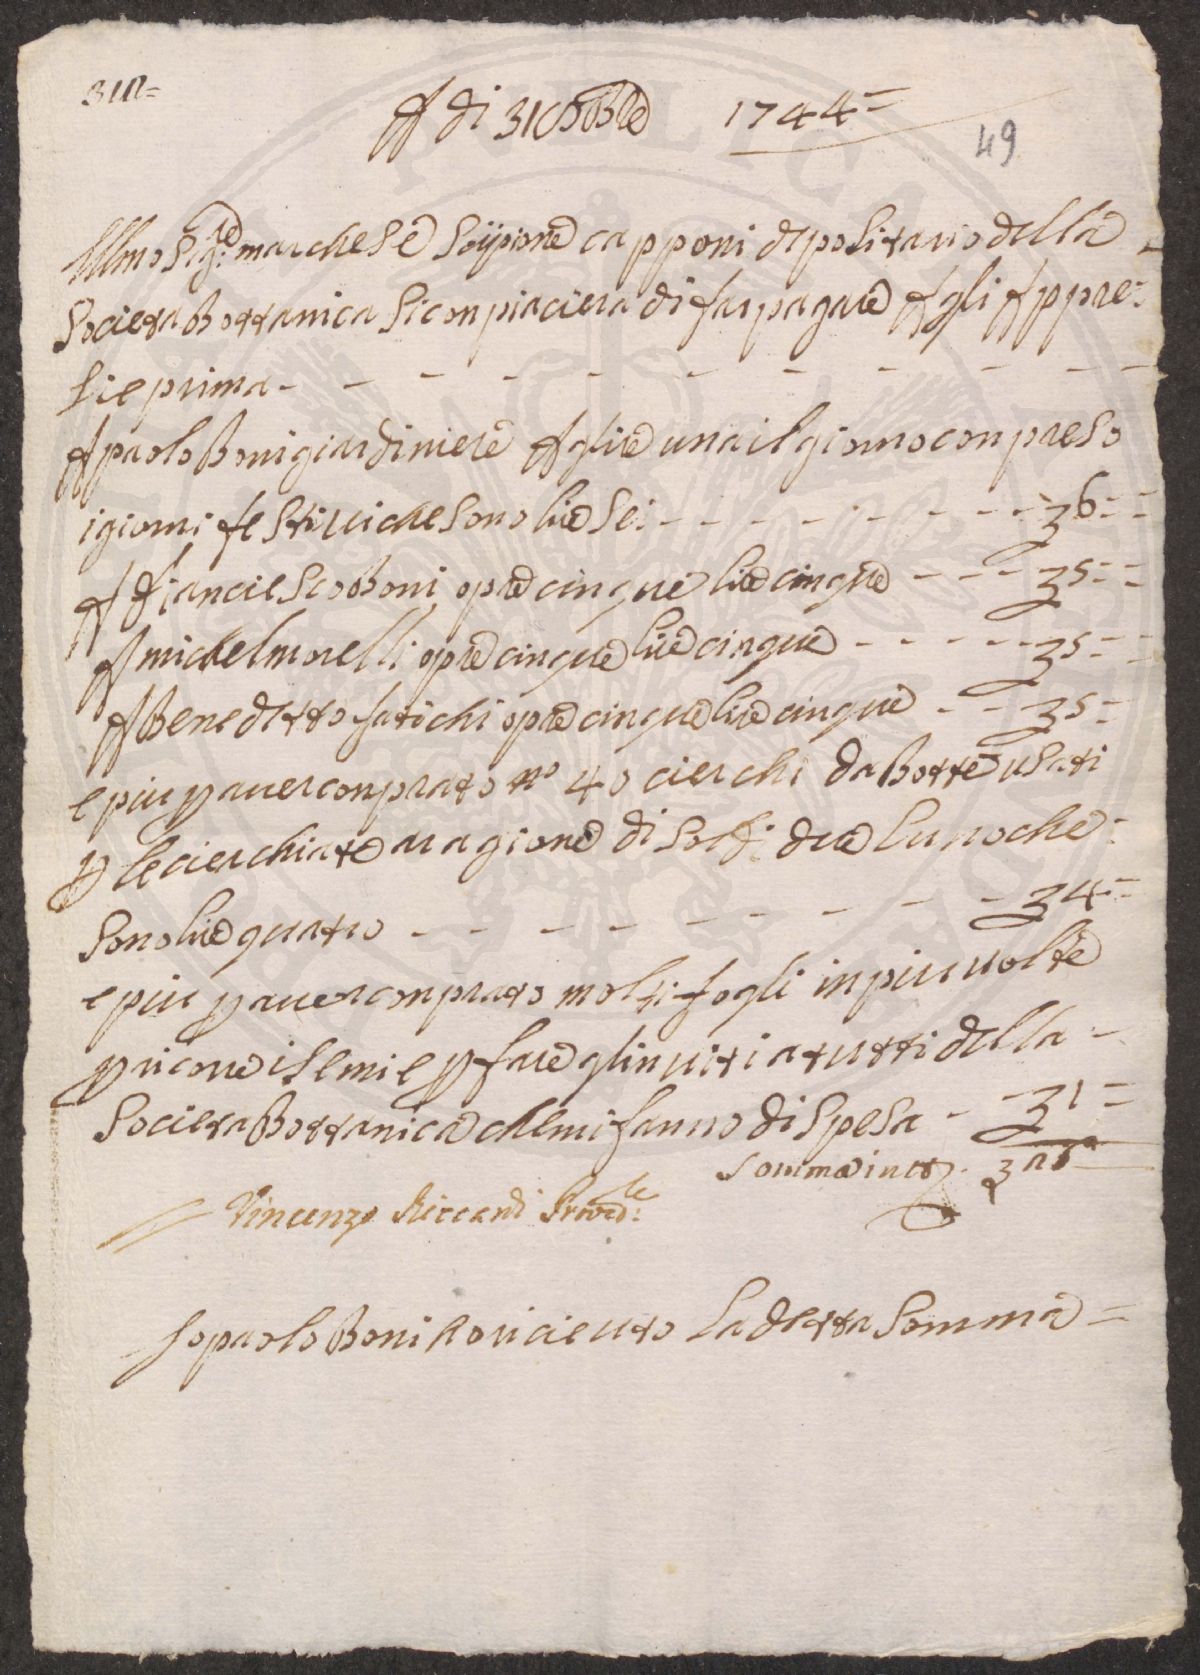 A di 31 8Bre 1744=
49
Illmo Sig:re marchese Scipione capponi depositario della
Societa Bottanica Si conpiaciera di far pagare Agli Appre:
Sie prima - - - - - - - - - -
A paolo Boni giardiniere A lire una il giorno conpreso
i giorni festivi che Sono lire Sei - - - - - - - - 36:=
A Francesco Boni opre cinque lire cinque - - - 35:=
A michel morelli opre cinque lire cinque - - - - - 35:=
A Benedetto fatichi opre cinque lire cinque - - 35:=
e piu p aver conprato no 40 cierchi da Botte usati
p le cierchiate a ragione di Sold: due l'uno che:
Sono lire quatro - - - - - - - - - 34:=
e piu p aver conprato molti fogli in piu volte
p ricore i Semi e p fare gl'inviti a tutti della -
Societa Bottanica che mi fanno di Spesa - 31=
Somma in tto
Vincenzo Riccardi Proved:re
Io paolo Boni o riceuto La detta Somma =